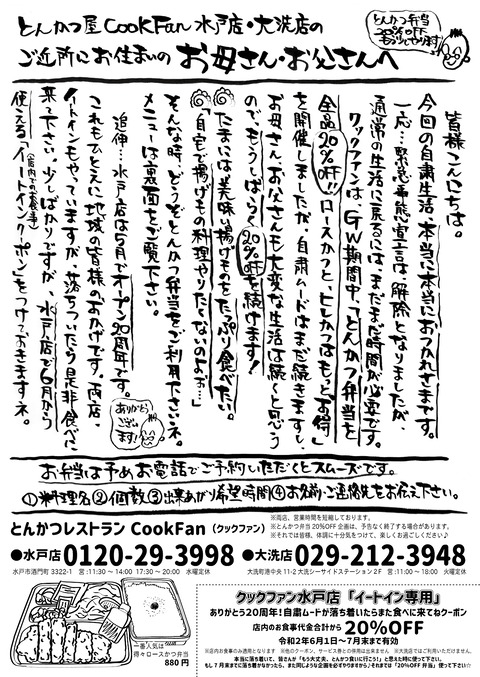 とんかつ屋CookFan水戸店・大洗店の
ご近所にお住まいのお母さん・お父さんへ
とんかつ弁当
20%OFF
もうしばらくやります!
皆様こんにちは。
今回の自粛生活、本当に本当におつかれさまです。
一応…緊急事態宣言は、解除となりましたが、
通常の生活に戻るには、まだまだ時間が必要です。
クックファンは、GW期間中、「とんかつ弁当を
全品20%OFF!!ロースかつと、ヒレかつはもっとお得」
を開催しましたが、自粛ムードはまだ続きますし、
お母さん、お父さんも大変な生活は続くと思う
ので、もうしばらく20%OFFを続けます!
たまには美味い揚げものをたっぷり食べたい。
「自宅で揚げもの料理やりたくないのよぉ…」
そんな時、どうぞとんかつ弁当をご利用下さいネ。
メニューは裏面をご覧下さい。
追伸…水戸店は5月でオープン20周年です。
これもひとえに地域の皆様のおかげです。両店、
イートインもやっていますが、落ちついたら是非食べに
来て下さい。少しばかりですが、水戸店で6月から
使える「イートインクーポン」をつけておきますネ。
(店内でのお食事)
ありがとう
ございます!
お弁当は予めお電話でご予約いただくとスムーズです。
①料理名②個数③出来あがり希望時間④お名前・ご連絡先をお伝え下さい。
とんかつレストラン CookFan(クックファン)
※両店、営業時間を短縮しております。
※とんかつ弁当 20%OFF 企画は、予告なく終了する場合があります。
※それでは皆様、体調に十分気をつけて、楽しくお過ごしください♪
●水戸店 0120-29-3998
水戸市酒門町 3322-1 営:11:30~14:00 17:30~20:00 水曜定休
●大洗店 029-212-3948
大洗町港中央 11-2 大洗シーサイドステーション2F 営:11:00~18:00 火曜定休
一番人気は
得々ロースかつ弁当
880 円
クックファン水戸店「イートイン専用」
ありがとう20周年!自粛ムードが落ち着いたらまた食べに来てねクーポン
店内のお食事代金合計から 20%OFF
令和2年6月1日~7月末まで有効
※店内お食事のみ適用となります ※他のクーポン、サービス券との併用は出来ません ※大洗店ではご利用いただけません。
本当に落ち着いて、皆さんが「もう大丈夫、とんかつ食いに行こう!」と思えた時に使って下さい。
もし7月末までに落ち着かなかったら、また同じような企画を必ずやりますから♪それまでは「20%OFF 弁当」使って下さい☆